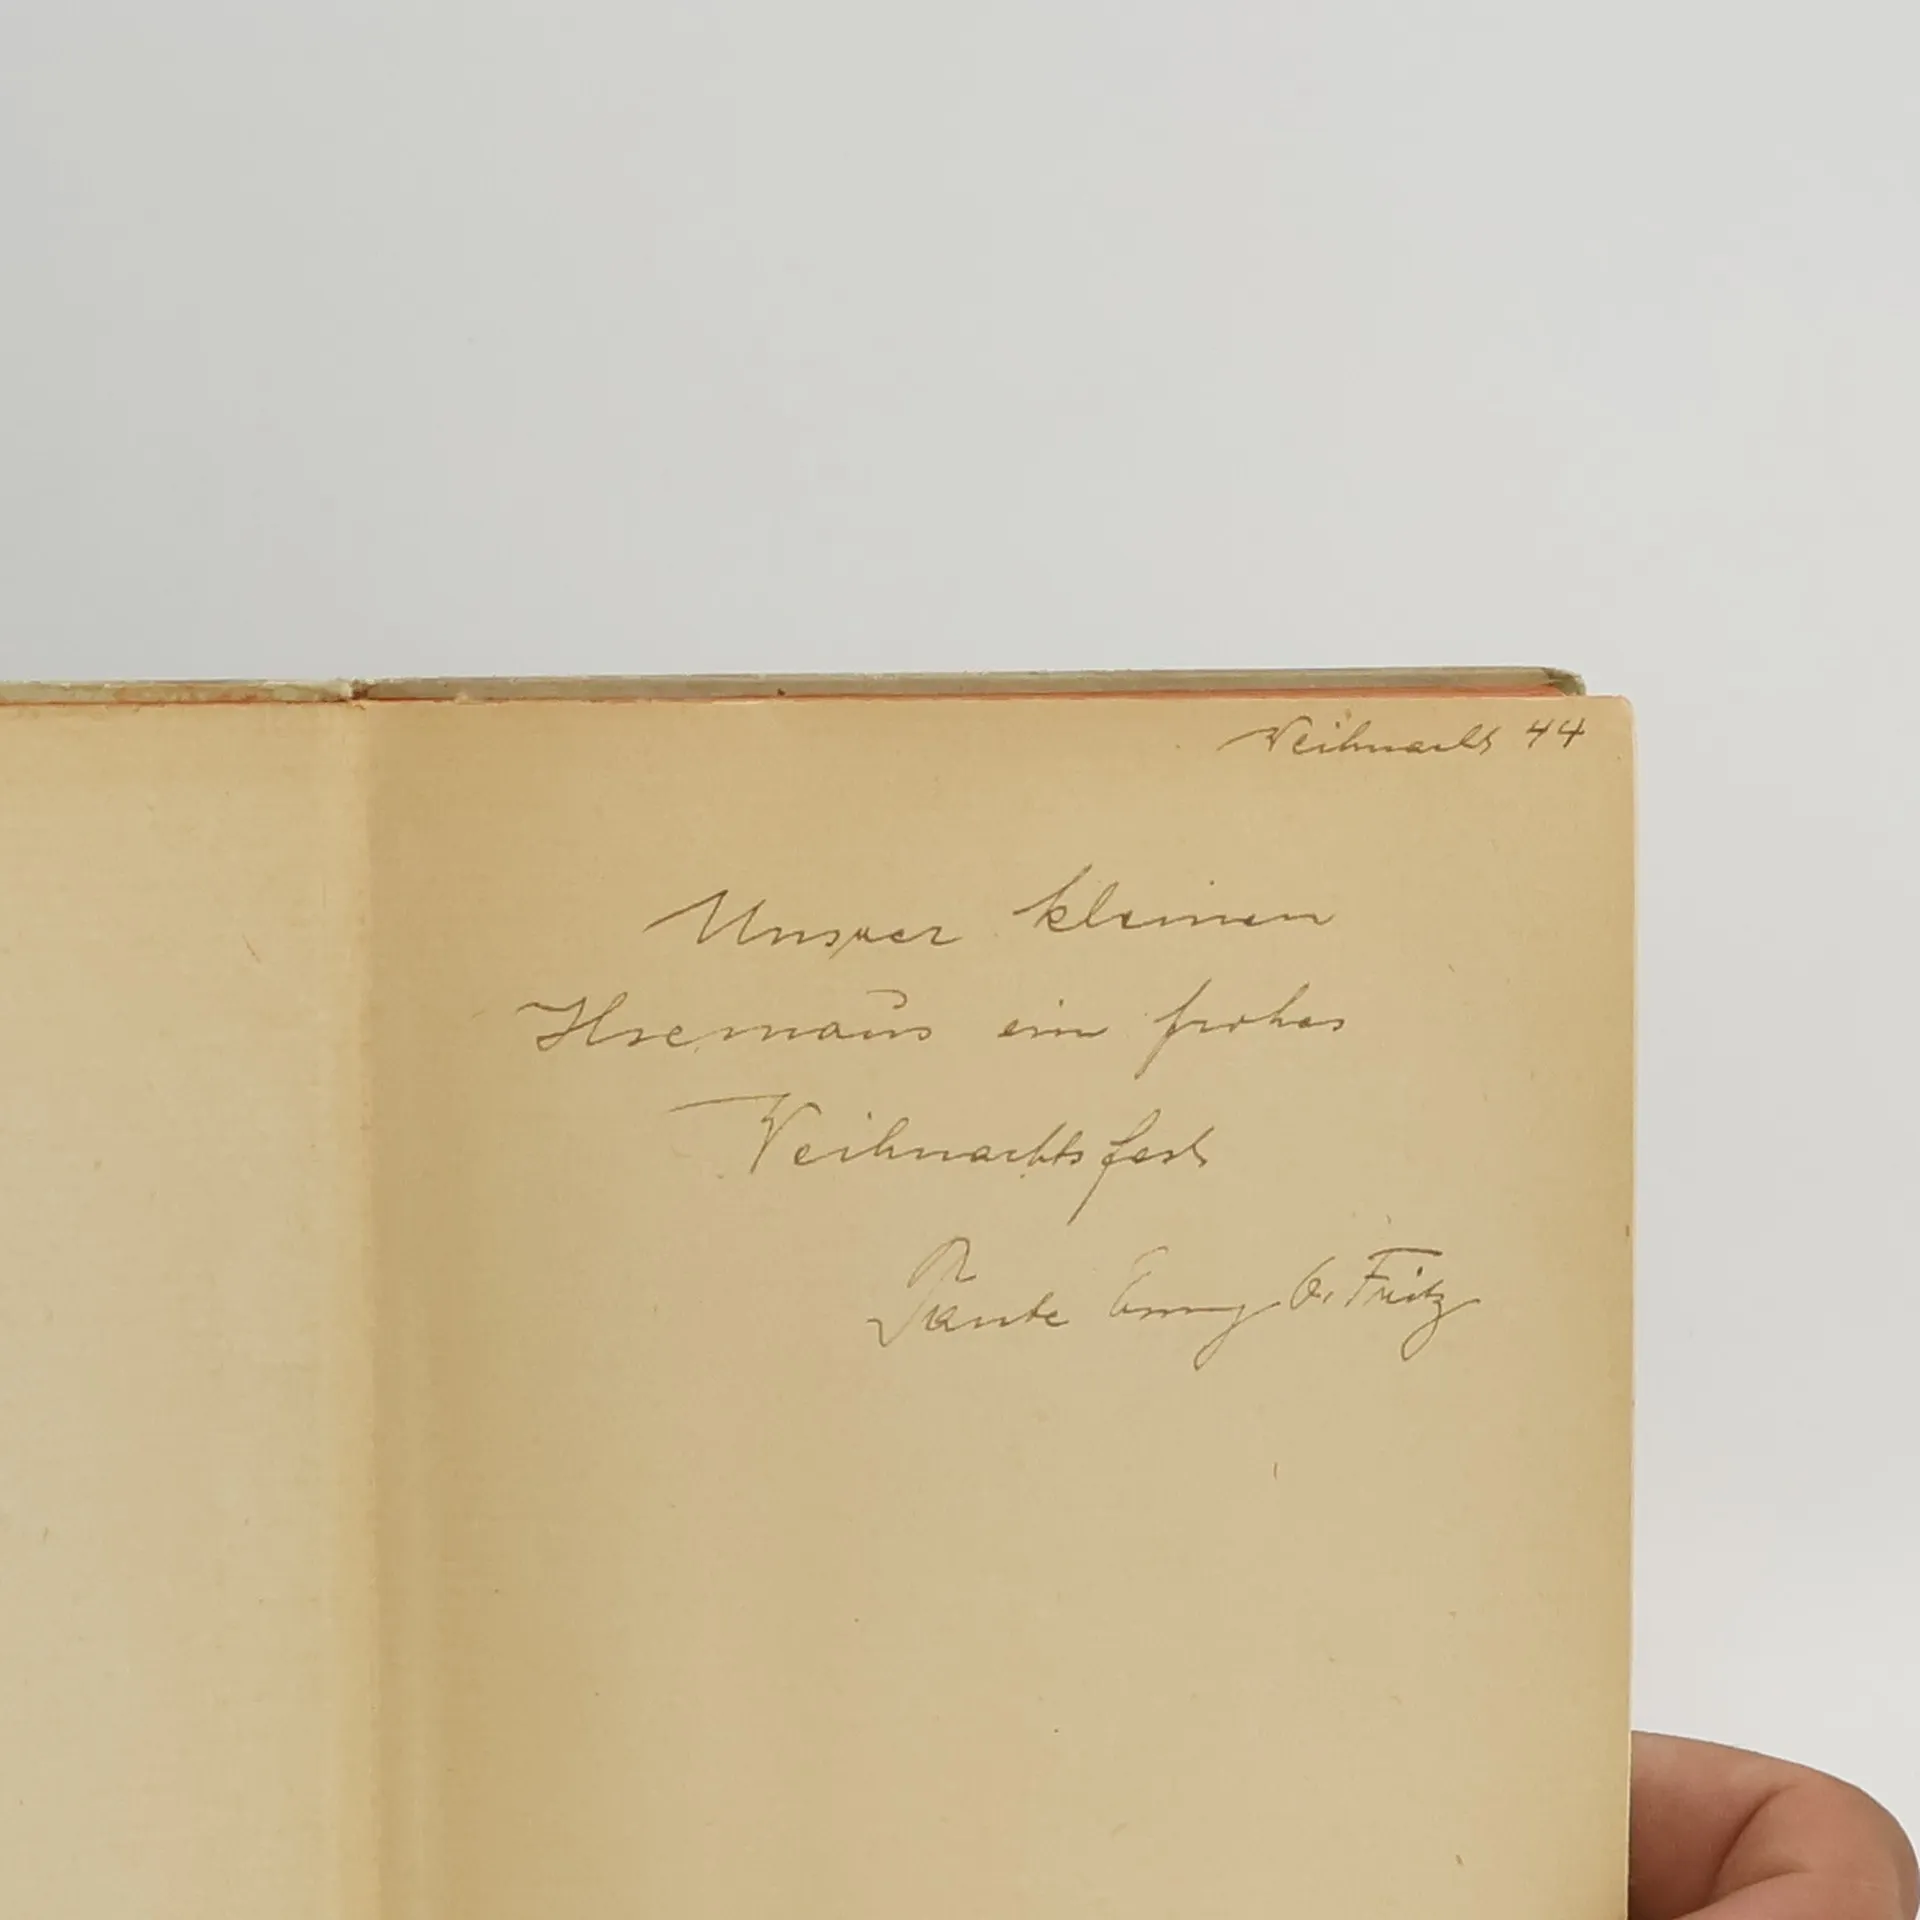 Weihnacht 44
Unserer kleinen
ein frohes
Weihnachtsfest
Tante Emmy u. Fritz